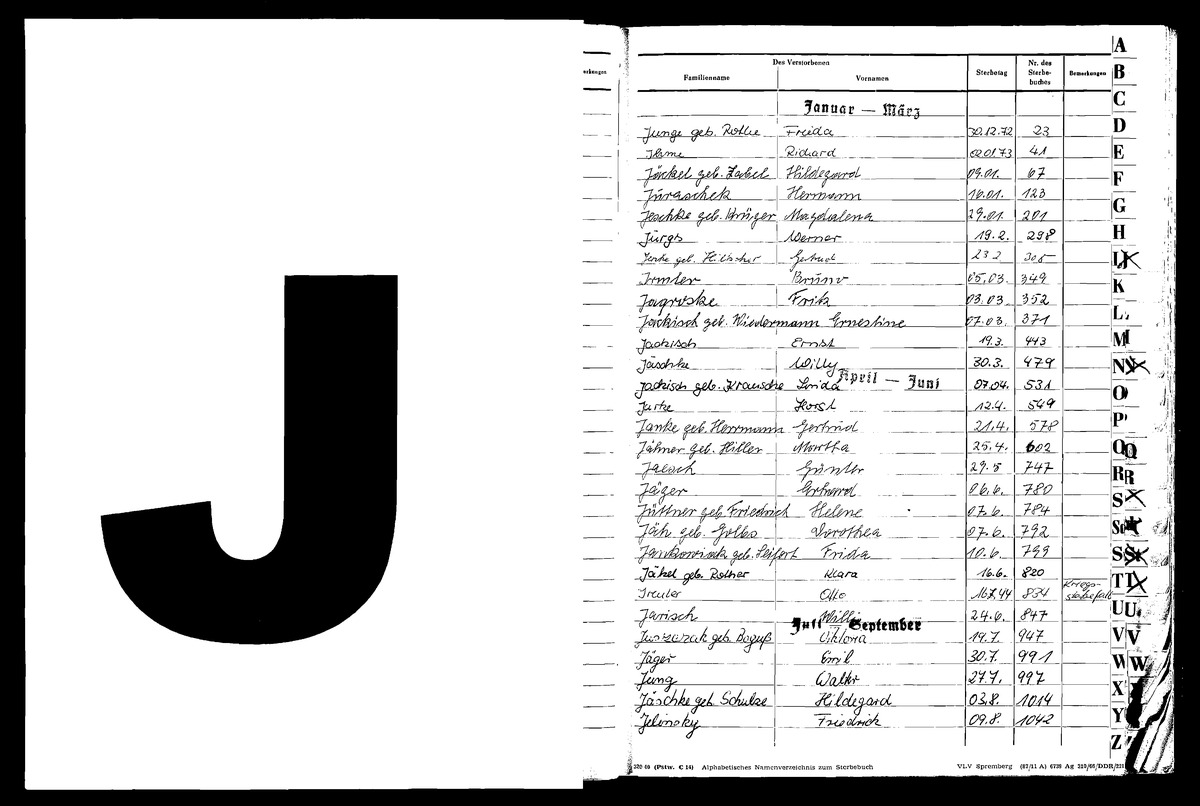 J
Des Verstorbenen
Familienname Vornamen Sterbetag Nr. des Sterbebuches Bemerkungen
Januar — März
Junge geb. Rothe Frieda 30.12.72 23
Ihme Richard 02.01.73 41
Jäckel geb. Zabel Hildegard 09.01. 67
Juraschek Hermann 16.01. 123
Jeschke geb. Krüger Magdalena 29.01. 201
Jürgs Werner 19.2. 298
geb. Hilscher Gertrud 23.2 305
Irmler Bruno 05.03. 349
Jagroske Fritz 03.03. 352
Jackisch geb. Wiedermann Ernestine 07.03. 371
Jackisch Ernst 19.3. 443
Jäschke Willy 30.3. 479
April — Juni
Jackisch geb. Krausche 07.04. 531
Horst 12.4. 549
Janke geb. Herrmann Gertrud 21.4. 578
Jähner geb. Hiller Martha 25.4. 602
Jaesch Günter 29.5 747
Jäger Erhard 06.6. 780
Jüttner geb. Friedrich Helene 07.6. 784
Jäh geb. Dorothea 07.6. 792
geb. Seifert Frida 10.6. 799
Jäkel geb. Rother Klara 16.6. 820
Otto 16.7.44 834 Kriegs-
sterbefall
Jarisch Willi 24.6. 847
Juli — September
geb. Boguß Viktoria 19.7. 947
Jäger Emil 30.7. 991
Jung Walter 27.7. 997
Jäschke geb. Schulze Hildegard 03.8. 1014
Jelinsky Friedrich 09.8. 1042
A
B
C
D
E
F
G
H
IJ
K
L
M
N
O
P
Q
R
S
T
U
V
W
X
Y
Z
(Pstw. C 14) Alphabetisches Namenverzeichnis zum Sterbebuch VLV Spremberg (87/11 A) 6739 Ag 310/66/DDR